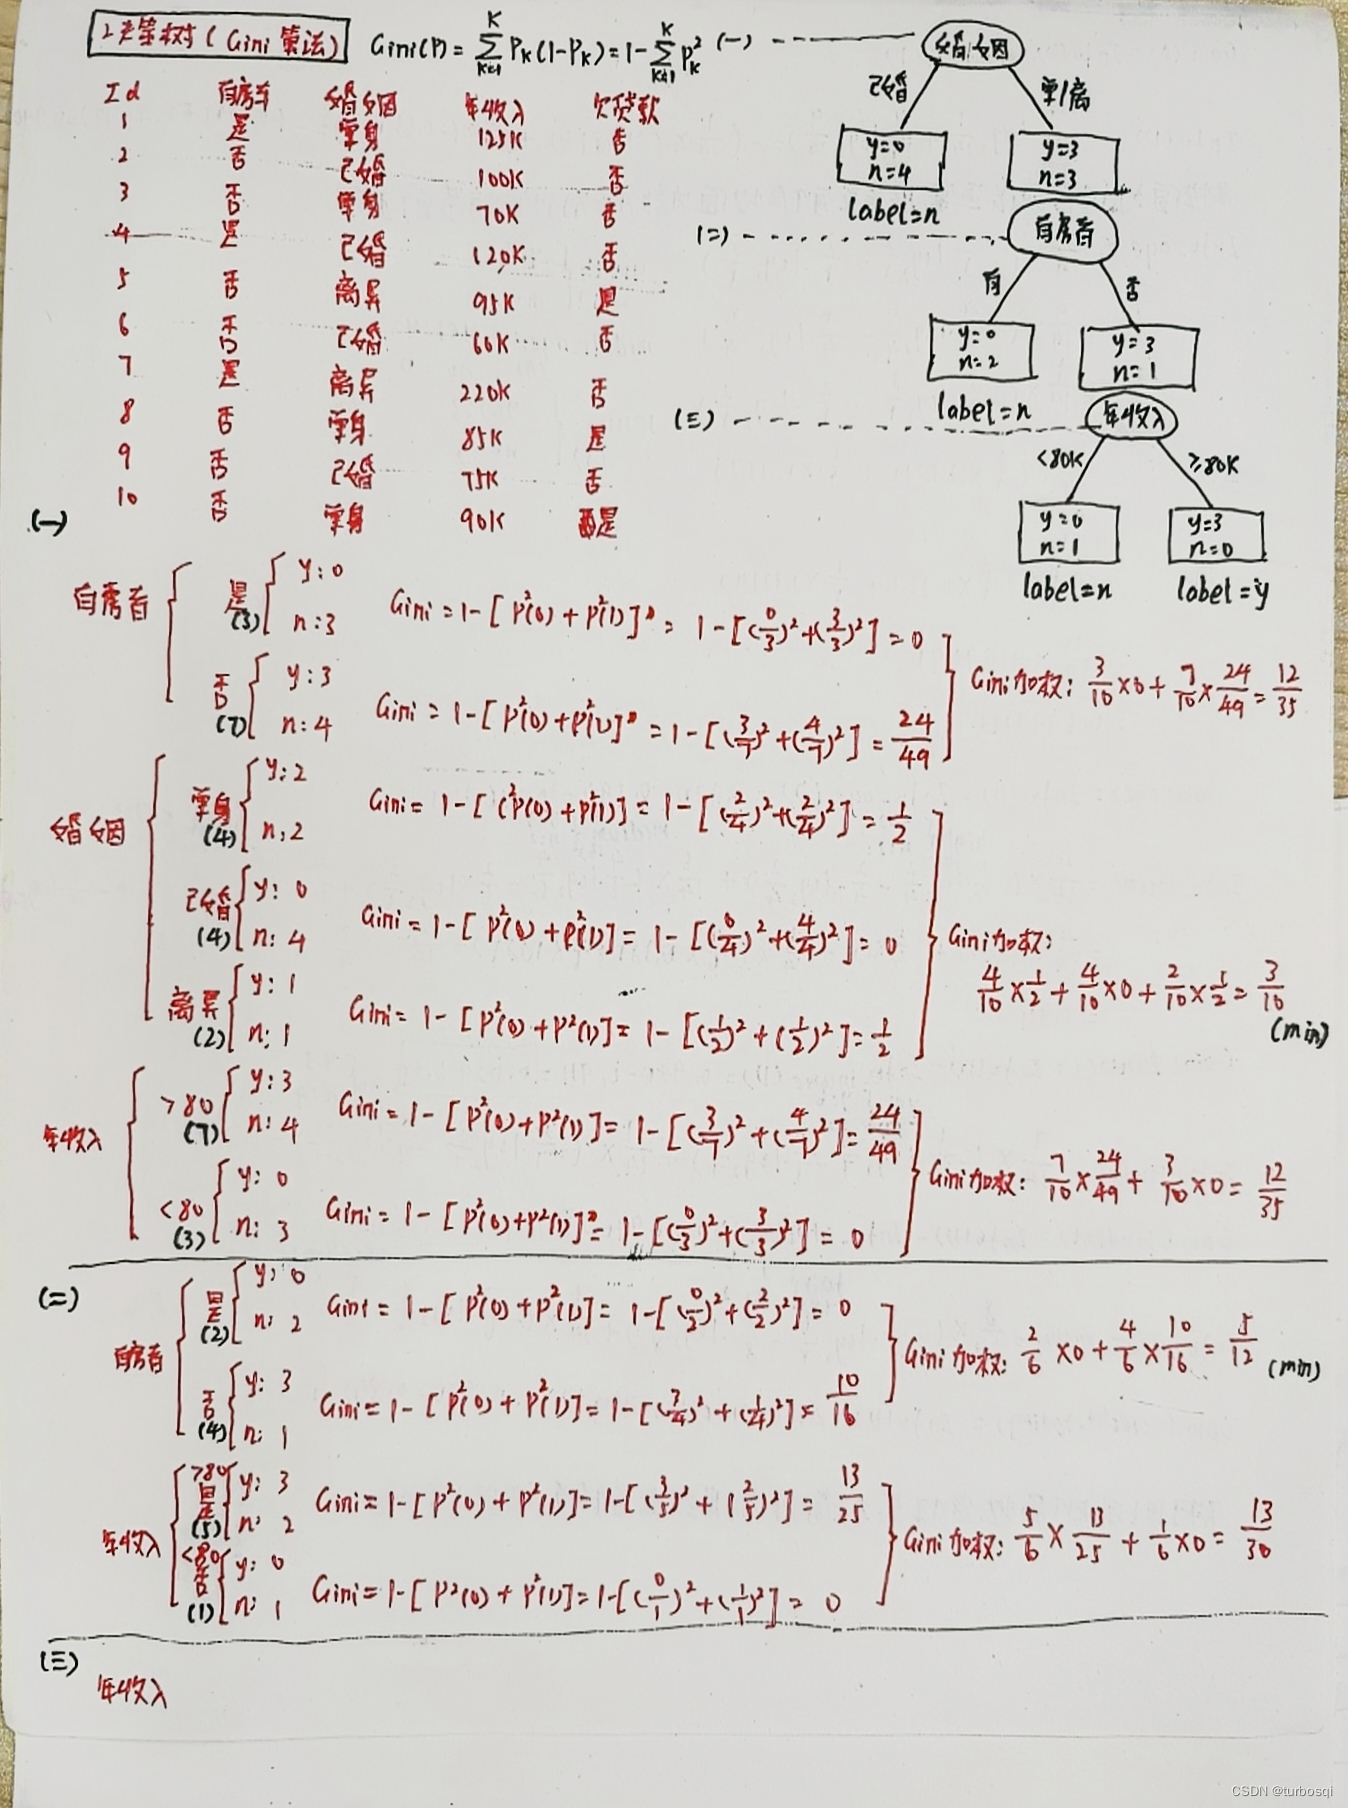 决策树(Gini算法) Gini(P)=∑(K=1→K) Pₖ(1-Pₖ)=1-∑(K=1→K) Pₖ² (一)
婚姻
已婚 单/离
y=0 n=4 label=n
y=3 n=3
(二) 有房者
有 否
y=0 n=2 label=n
y=3 n=1
(三) 年收入
<80K ≥80K
y=0 n=1 label=n
y=3 n=0 label=y
Id 有房车 婚姻 年收入 欠贷款
1 是 单身 125K 否
2 否 已婚 100K 否
3 否 单身 70K 否
4 是 已婚 120K 否
5 否 离异 95K 是
6 否 已婚 60K 否
7 是 离异 220K 否
8 否 单身 85K 是
9 否 已婚 75K 否
10 否 单身 90K 是
(一)
有房者
是(3) y:0 n:3 Gini=1-[P²(0)+P²(1)]=1-[(0/3)²+(3/3)²]=0
否(7) y:3 n:4 Gini=1-[P²(0)+P²(1)]=1-[(3/7)²+(4/7)²]=24/49
Gini加权: 3/10×0+7/10×24/49=12/35
婚姻
单身(4) y:2 n:2 Gini=1-[P²(0)+P²(1)]=1-[(2/4)²+(2/4)²]=1/2
已婚(4) y:0 n:4 Gini=1-[P²(0)+P²(1)]=1-[(0/4)²+(4/4)²]=0
离异(2) y:1 n:1 Gini=1-[P²(0)+P²(1)]=1-[(1/2)²+(1/2)²]=1/2
Gini加权:
4/10×1/2+4/10×0+2/10×1/2=3/10
(min)
年收入
>80(7) y:3 n:4 Gini=1-[P²(0)+P²(1)]=1-[(3/7)²+(4/7)²]=24/49
<80(3) y:0 n:3 Gini=1-[P²(0)+P²(1)]=1-[(0/3)²+(3/3)²]=0
Gini加权: 7/10×24/49+3/10×0=12/35
(二)
有房者
是(2) y:0 n:2 Gini=1-[P²(0)+P²(1)]=1-[(0/2)²+(2/2)²]=0
否(4) y:3 n:1 Gini=1-[P²(0)+P²(1)]=1-[(3/4)²+(1/4)²]=10/16
Gini加权: 2/6×0+4/6×10/16=5/12 (min)
年收入
>80 是(5) y:3 n:2 Gini=1-[P²(0)+P²(1)]=1-[(3/5)²+(2/5)²]=13/25
<80 否(1) y:0 n:1 Gini=1-[P²(0)+P²(1)]=1-[(0/1)²+(1/1)²]=0
Gini加权: 5/6×13/25+1/6×0=13/30
(三)
年收入
CSDN @turbosqi